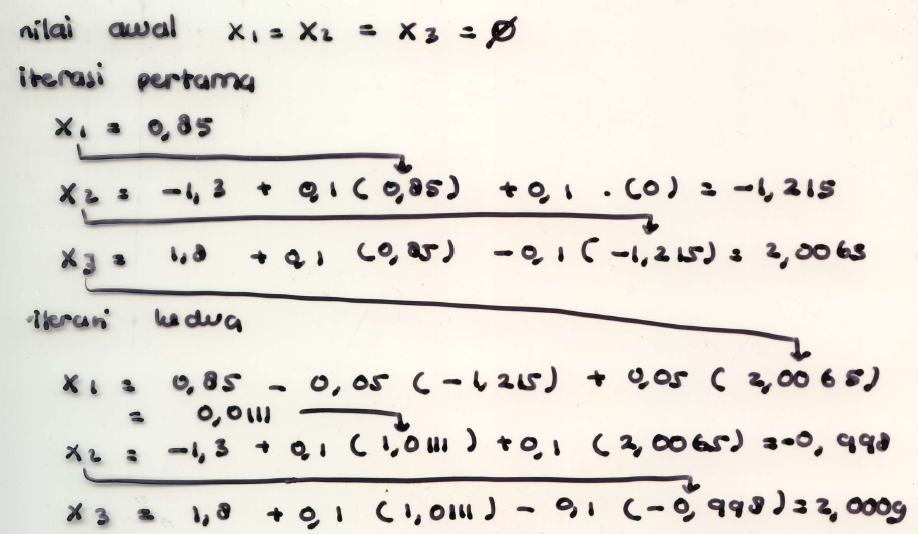 nilai awal x₁ = x₂ = x₃ = Ø
iterasi pertama
x₁ = 0,85
x₂ = -1,3 + 0,1 (0,85) + 0,1 . (0) = -1,215
x₃ = 1,8 + 0,1 (0,85) - 0,1 (-1,215) = 2,0065
iterasi kedua
x₁ = 0,85 - 0,05 (-1,215) + 0,05 (2,0065)
= 0,0111
x₂ = -1,3 + 0,1 (1,0111) + 0,1 (2,0065) = -0,998
x₃ = 1,8 + 0,1 (1,0111) - 0,1 (-0,998) = 2,0009